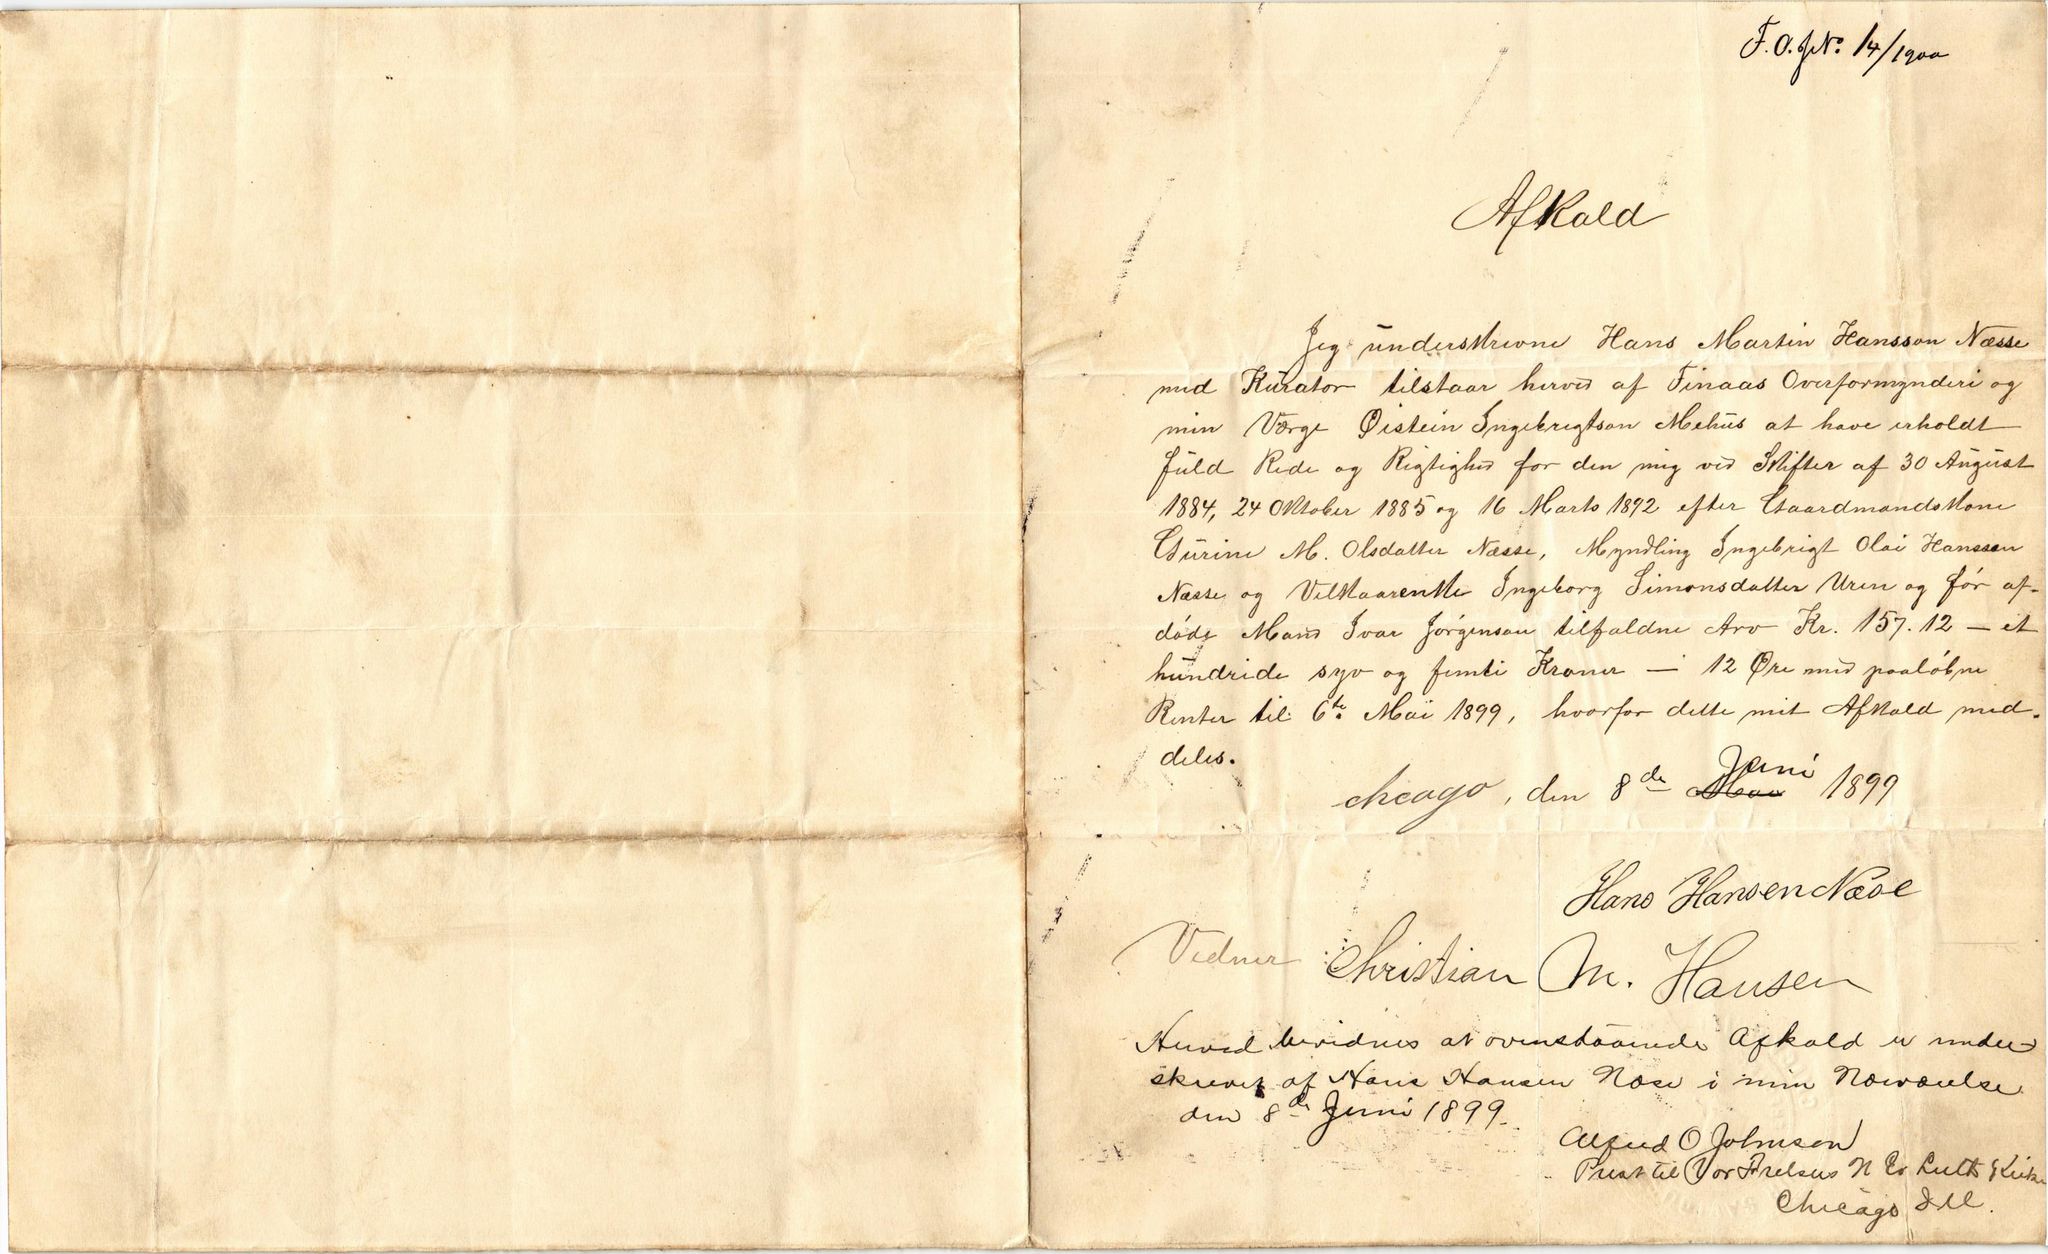 F.O.J№ 14/1900
Afkald
Jeg underskrevne Hans Martin Hansson Næsse
med Kurator tilstaar herved af Finaas Overformynderi og
min Værge Øistein Ingebrigtson Mehus at have erholdt
fuld Rede og Rigtighed for den mig ved Skifter af 30 August
1884, 24 Oktober 1885 og 16 Marts 1892 efter Gaardmandskone
Gurine M. Olsdatter Næsse, Myndling Ingebrigt Olai Hanssen
Næsse og Vilkaarenke Ingeborg Simonsdatter Uren og før af-
døde Mand Ivar Jørgenson tilfaldne Arv Kr. 157.12 — et
hundrede syv og femti Kroner — 12 Øre med paaløbne
Renter til 6te Mai 1899, hvorfor dette mit Afkald med-
deles.
Chicago, den 8de Mai Juni 1899
Hans Hansen Næse
Vidner Christian M. Hansen
Herved bevidnes at ovenstaaende Afkald er under-
skrevet af Hans Hansen Næse i min Nærværelse
den 8de Juni 1899.
Alfred O Johnson
Prest til Vor Frelsers N Ev Luth Kirke
Chicago Ill.